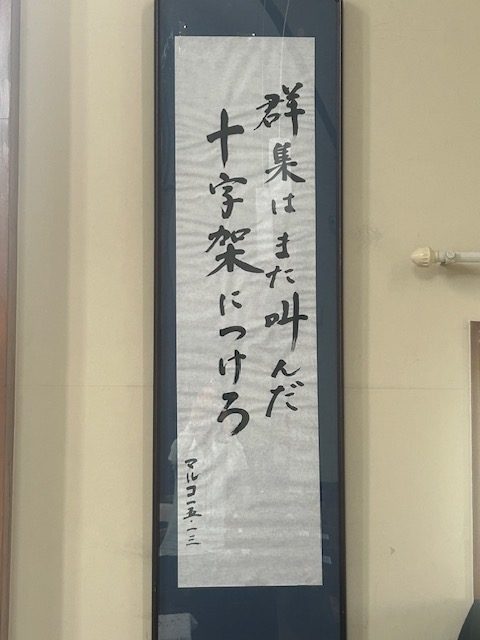 群集はまた叫んだ
十字架につけろ
マルコ一五・一三